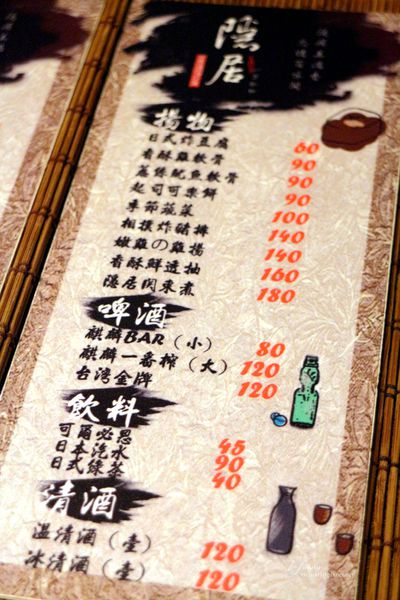 隱居
揚物
日式炸豆腐 60
香酥雞軟骨 90
魷魚軟骨 90
起司可樂餅 90
季節蔬菜 100
相撲炸豬排 140
嫩雞の雞揚 140
香酥鮮透抽 160
隱居関東煮 180
啤酒
麒麟BAR（小） 80
麒麟一番榨（大） 120
台灣金牌 120
飲料
可爾必思 45
日本汽水 90
日式綠茶 40
清酒
溫清酒（壺） 120
冰清酒（壺） 120